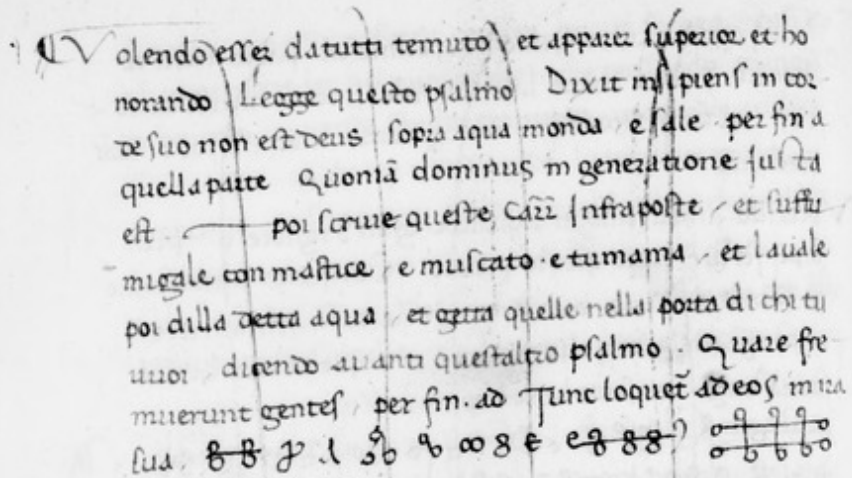 Volendo esser da tutti temuto et apparer superior et ho
norando Legge questo psalmo Dixit insipiens in cor
de suo non est deus sopra aqua monda e sale per fin a
quella parte Quoniā dominus in generatione justa
est poi scrive queste infraposte et suffu
migale con mastice e muscato e tumama et lavale
poi dilla detta aqua et getta quelle nella porta di chi tu
vuoi dicendo avanti questaltro psalmo Quare fre
muerunt gentes per fin ad Tunc loquet̄ ad eos in ira
sua